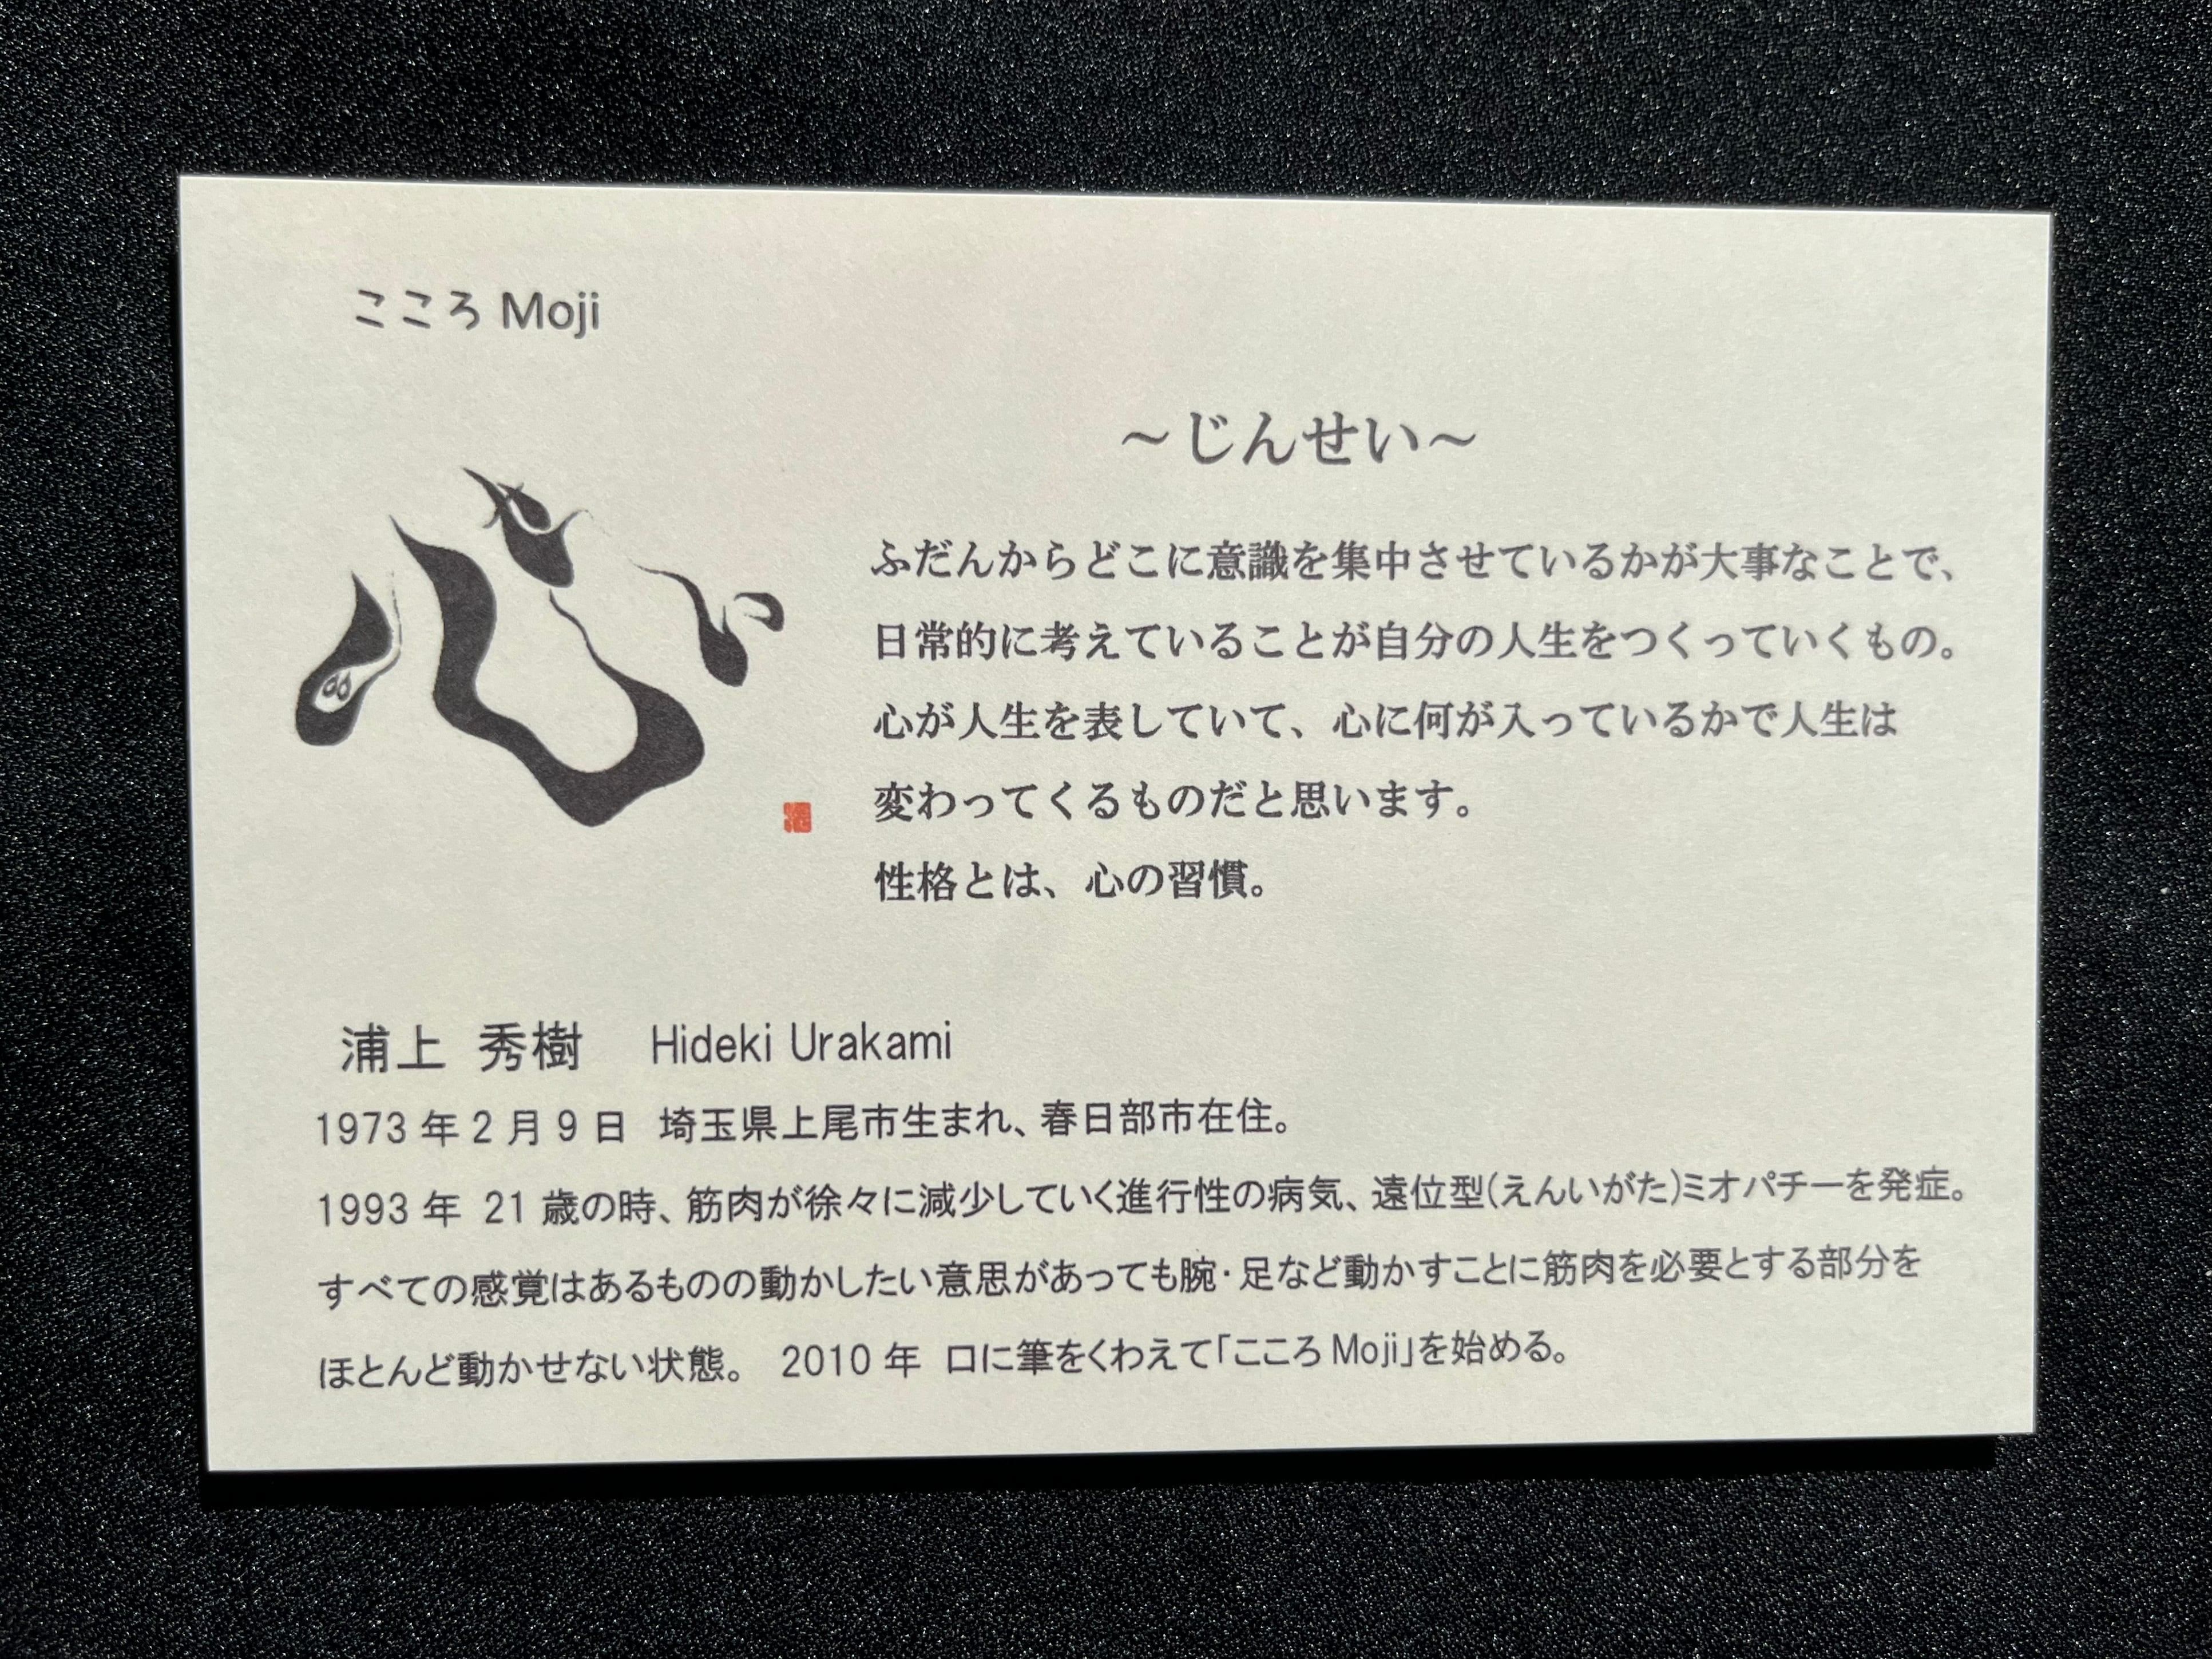 こころ Moji
～じんせい～
ふだんからどこに意識を集中させているかが大事なことで、
日常的に考えていることが自分の人生をつくっていくもの。
心が人生を表していて、心に何が入っているかで人生は
変わってくるものだと思います。
性格とは、心の習慣。
浦上 秀樹 Hideki Urakami
1973 年 2 月 9 日 埼玉県上尾市生まれ、春日部市在住。
1993 年 21 歳の時、筋肉が徐々に減少していく進行性の病気、遠位型(えんいがた)ミオパチーを発症。
すべての感覚はあるものの動かしたい意思があっても腕・足など動かすことに筋肉を必要とする部分を
ほとんど動かせない状態。 2010 年 口に筆をくわえて「こころ Moji」を始める。